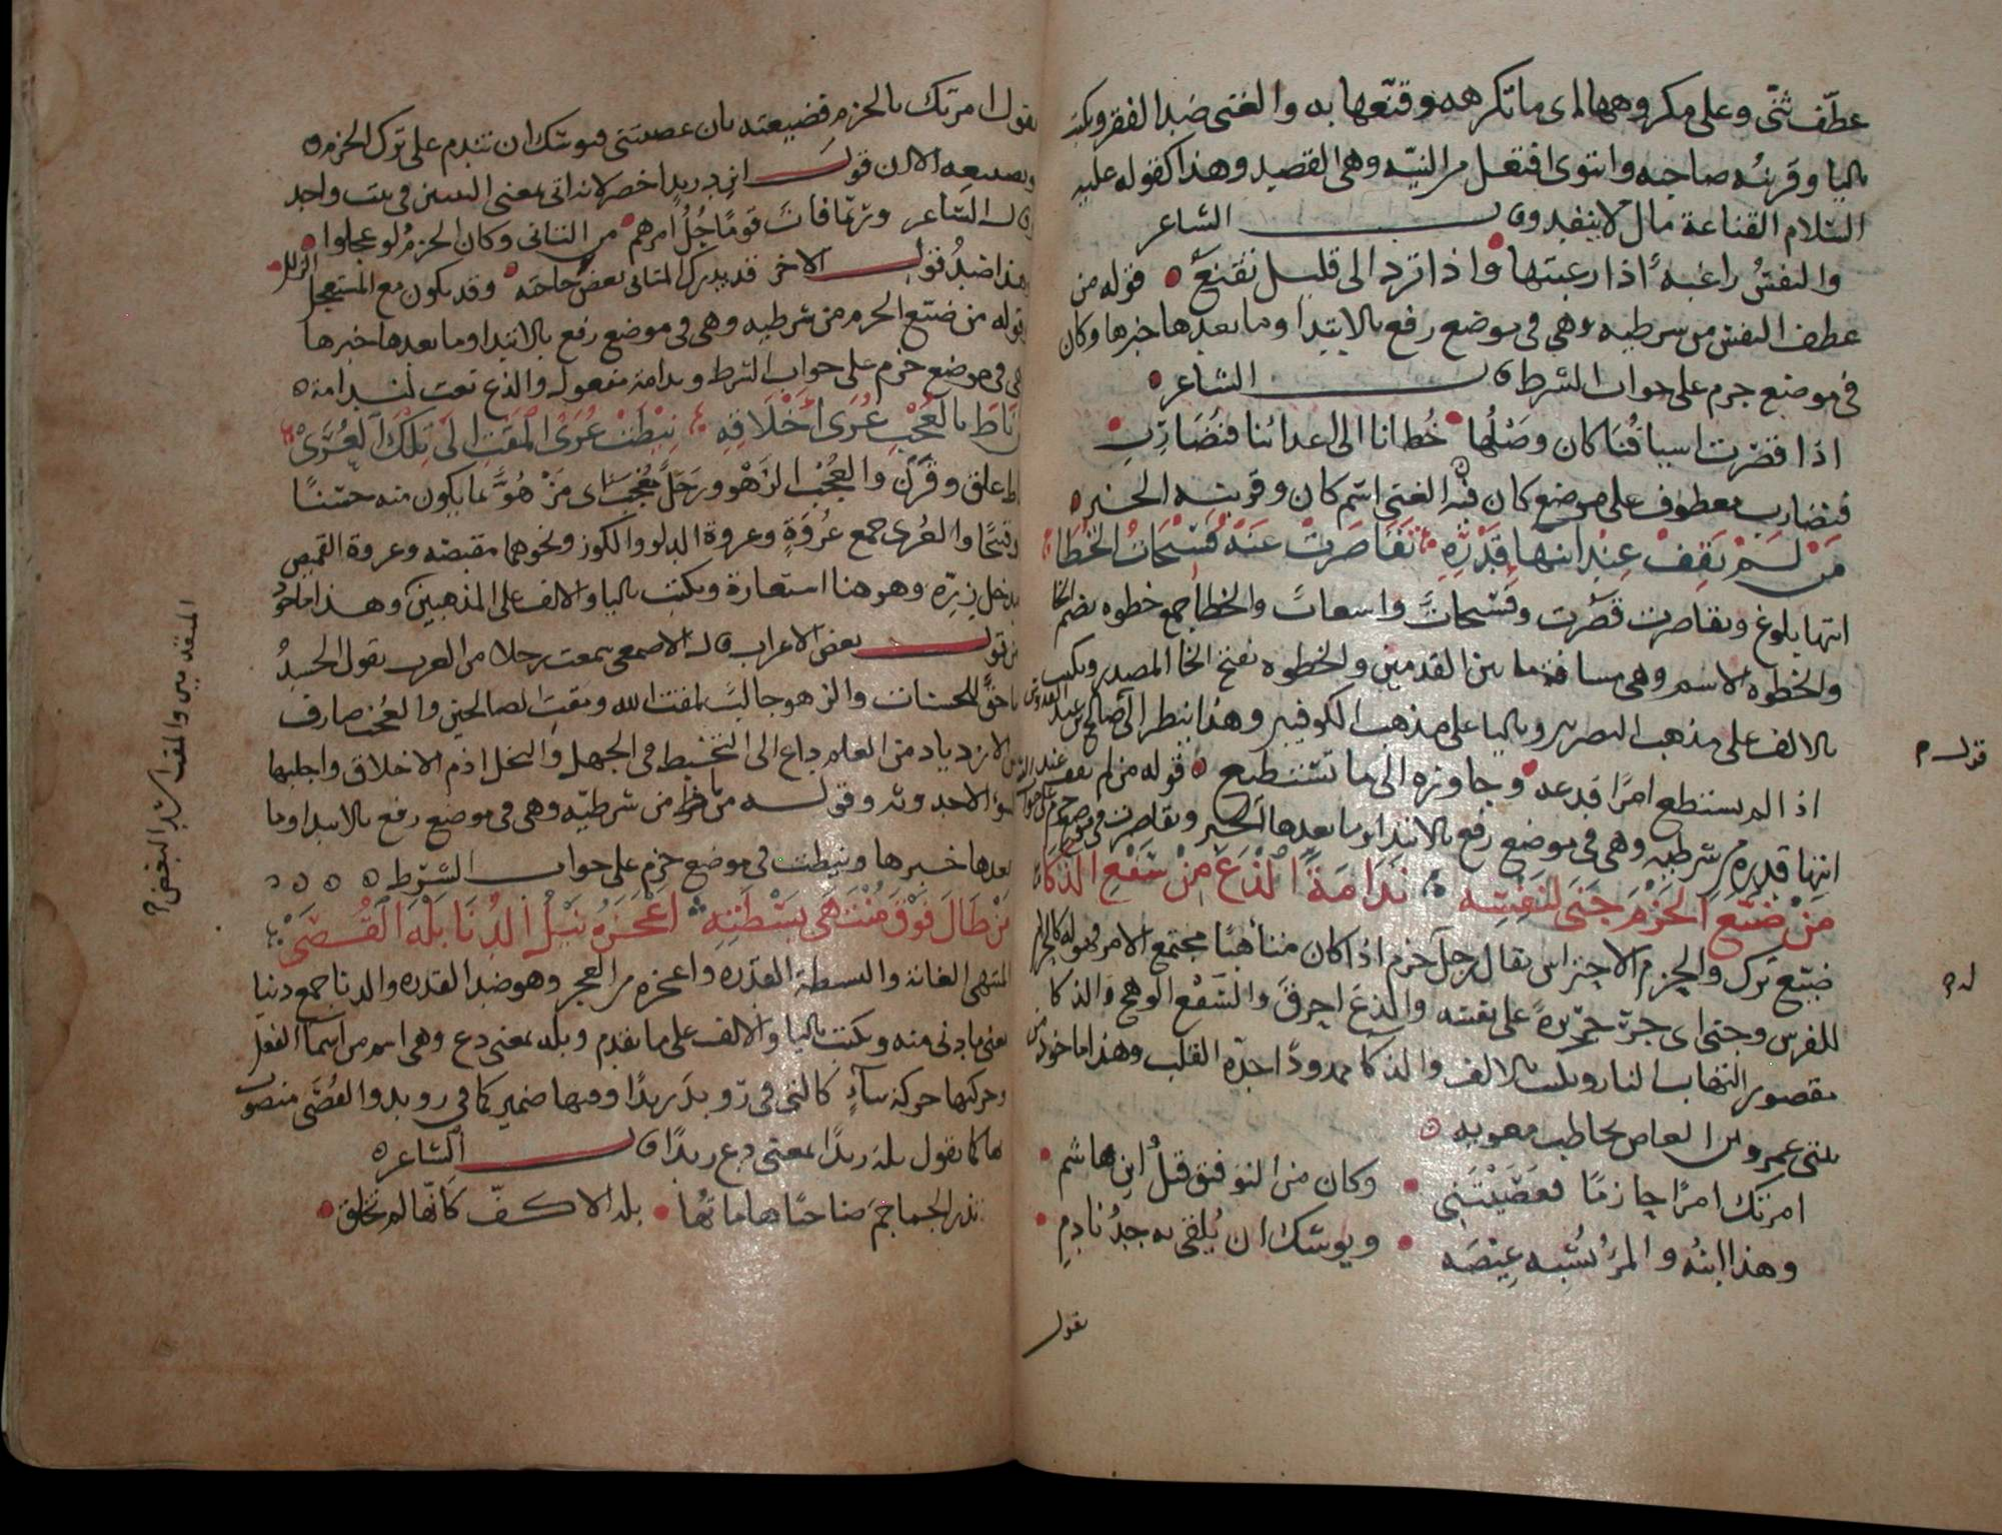 عطّف ثنّى وعلى مكروهها اى ما تكرهه وقنّعها به والغنى ضد الفقر ويكتب
باليا وقرينه صاحبه وانتوى افتعل من النيّه وهى القصد وهذا كقوله عليه
السّلام القناعة مال لا ينفد وقال الشاعر
والنفسُ راغبةٌ اذا رغبتها واذا ترد الى قليل تقنعُ قوله من
عطف النفس من شرطيه وهي فى موضع رفع بالابتدا وما بعدها خبرها وكان
فى موضع جزم على جواب الشرط قال الشاعر
اذا قصرت اسيافنا كان وصْلُها خُطانا الى اعدائنا فنُضَارِبِ
فنضارب معطوف على موضع كان الغنى اسم كان وقرينه الخبر
مَنْ لَمْ يَقِفْ عِنْدَ انتهاءِ قَدْرِهِ تَقَاصَرَتْ عَنْهُ فَسِيحَاتُ الخُطَا
انتها بلوغ وتقاصرت قصّرت وفسيحاتٌ واسعاتٌ والخطا جمع خطوه بضم الخا
والخطوه الاسم وهى مسافة ما بين القدمين والخطوه بفتح الخا المصدر ويكتب
بالالف على مذهب البصريين وباليا على مذهب الكوفيين وهذا ينظر الى صالح بن عبد القدوس
اذا لم يستطع امرًا فدعه وجاوزه الى ما تستطيع قوله من لم يقف عند
انتها قدره من شرطيه وهى فى موضع رفع بالابتدا وما بعدها الخبر وتقاصرت فى موضع جزم على جواب
مَنْ ضَيَّعَ الحَزْمَ جَنَى لنَفْسِهِ نَدَامَةً أَلْذَعَ مِنْ سَفْعِ الذَّكَا
ضيّع ترك والحزم الاحتراس يقال رجل حزم اذا كان متأهبًا مجتمع الامر
للفرس وجنى اى جرّ جريرةً على نفسه والذع احرق والسَّفْع الوهج والذكا
مقصور التهاب النار ويكتب بالالف والذكا ممدودًا حدّة القلب وهذا ماخوذ من
عمرو بن العاص يخاطب معويه
امرتك امرًا حازمًا فعصَيْتَنِي وكان من التوفيق قتلُ ابن هاشم
وهذا ابنُه والمرْءُ يُشْبِه عِيْصَه ويوشك ان يُلقى به جدّ نادمِ
يقول
قوله م
يقول امرتك بالحزم فضيعته بان عصيتنى فيوشك ان تندم على ترك الحزم
قول ابن دريد اخصر لانه اتى بمعنى البيتين فى بيت واحد
قال الشاعر وربّما فاتَ قومًا جُلُّ امرهم من التانى وكان الحزمُ لو عجلوا
وهذا ضدُّ قول الاخر قد يدرك المتانى بعض حاجته وقد يكون مع المستعجل الزلل
قوله من ضيّع الحزم من شرطيه وهى فى موضع رفع بالابتدا وما بعدها خبرها
فى موضع جزم على جواب الشرط وندامة مفعوله والذع نعت لندامة
نَاطَ بالعُجْبِ عُرَى أَخْلَاقِهِ نِيْطَتْ عُرَى المَقْتِ إلى تِلْكَ العُرَى
ناط علق وقرن والعُجْب الزهْو ورجل مُعْجَب اى مَزْهُوّ بما يكون منه حسنًا
وقبيحًا والعُرى جمع عُروَةٍ وعروة الدلو والكوز ونحوهما مقبضه وعروة القميص
مدخل زِرّه وهو هنا استعارة ويكتب باليا والالف على المذهبين وهذا ماخوذ
من قول بعض الاعراب قال الاصمعى سمعت رجلا من العرب يقول الحسدُ
ماحقٌ للحسنات والزهو جالبٌ لمقت الله ومقتِ الصالحين والعُجْب صارف
عن الازدياد من العلم داع الى التخبط فى الجهل والبخل اذم الاخلاق واجلبها
لسوء الاحدوثه وقوله من ناط من شرطيّه وهى فى موضع رفع بالابتدا وما
بعدها خبرها ونيطت فى موضع جزم على جواب الشّرط
مَنْ طَالَ فَوْقَ مُنْتَهَى بَسْطَتِهِ أَعْجَزَهُ نَيْلُ الدُّنَا بَلْهَ القُصَى
المنتهى الغاية والبسطة القدره واعجزه من العجز وهو ضد القدره والدنا جمع دنيا
يعنى ما دنى منه ويكتب باليا والالف على ما تقدم وبله بمعنى دع وهى اسم من اسما الفعل
وحركتها حركة بناءٍ كالتى فى رويد زيدًا وفيها ضمير كما فى رويد والقصَى منصوب
بها كما تقول بله زيدًا بمعنى دع زيدًا قال الشاعر
تذر الجماجمَ ضاحيًا هاماتُها بله الاكفّ كانّها لم تخلق